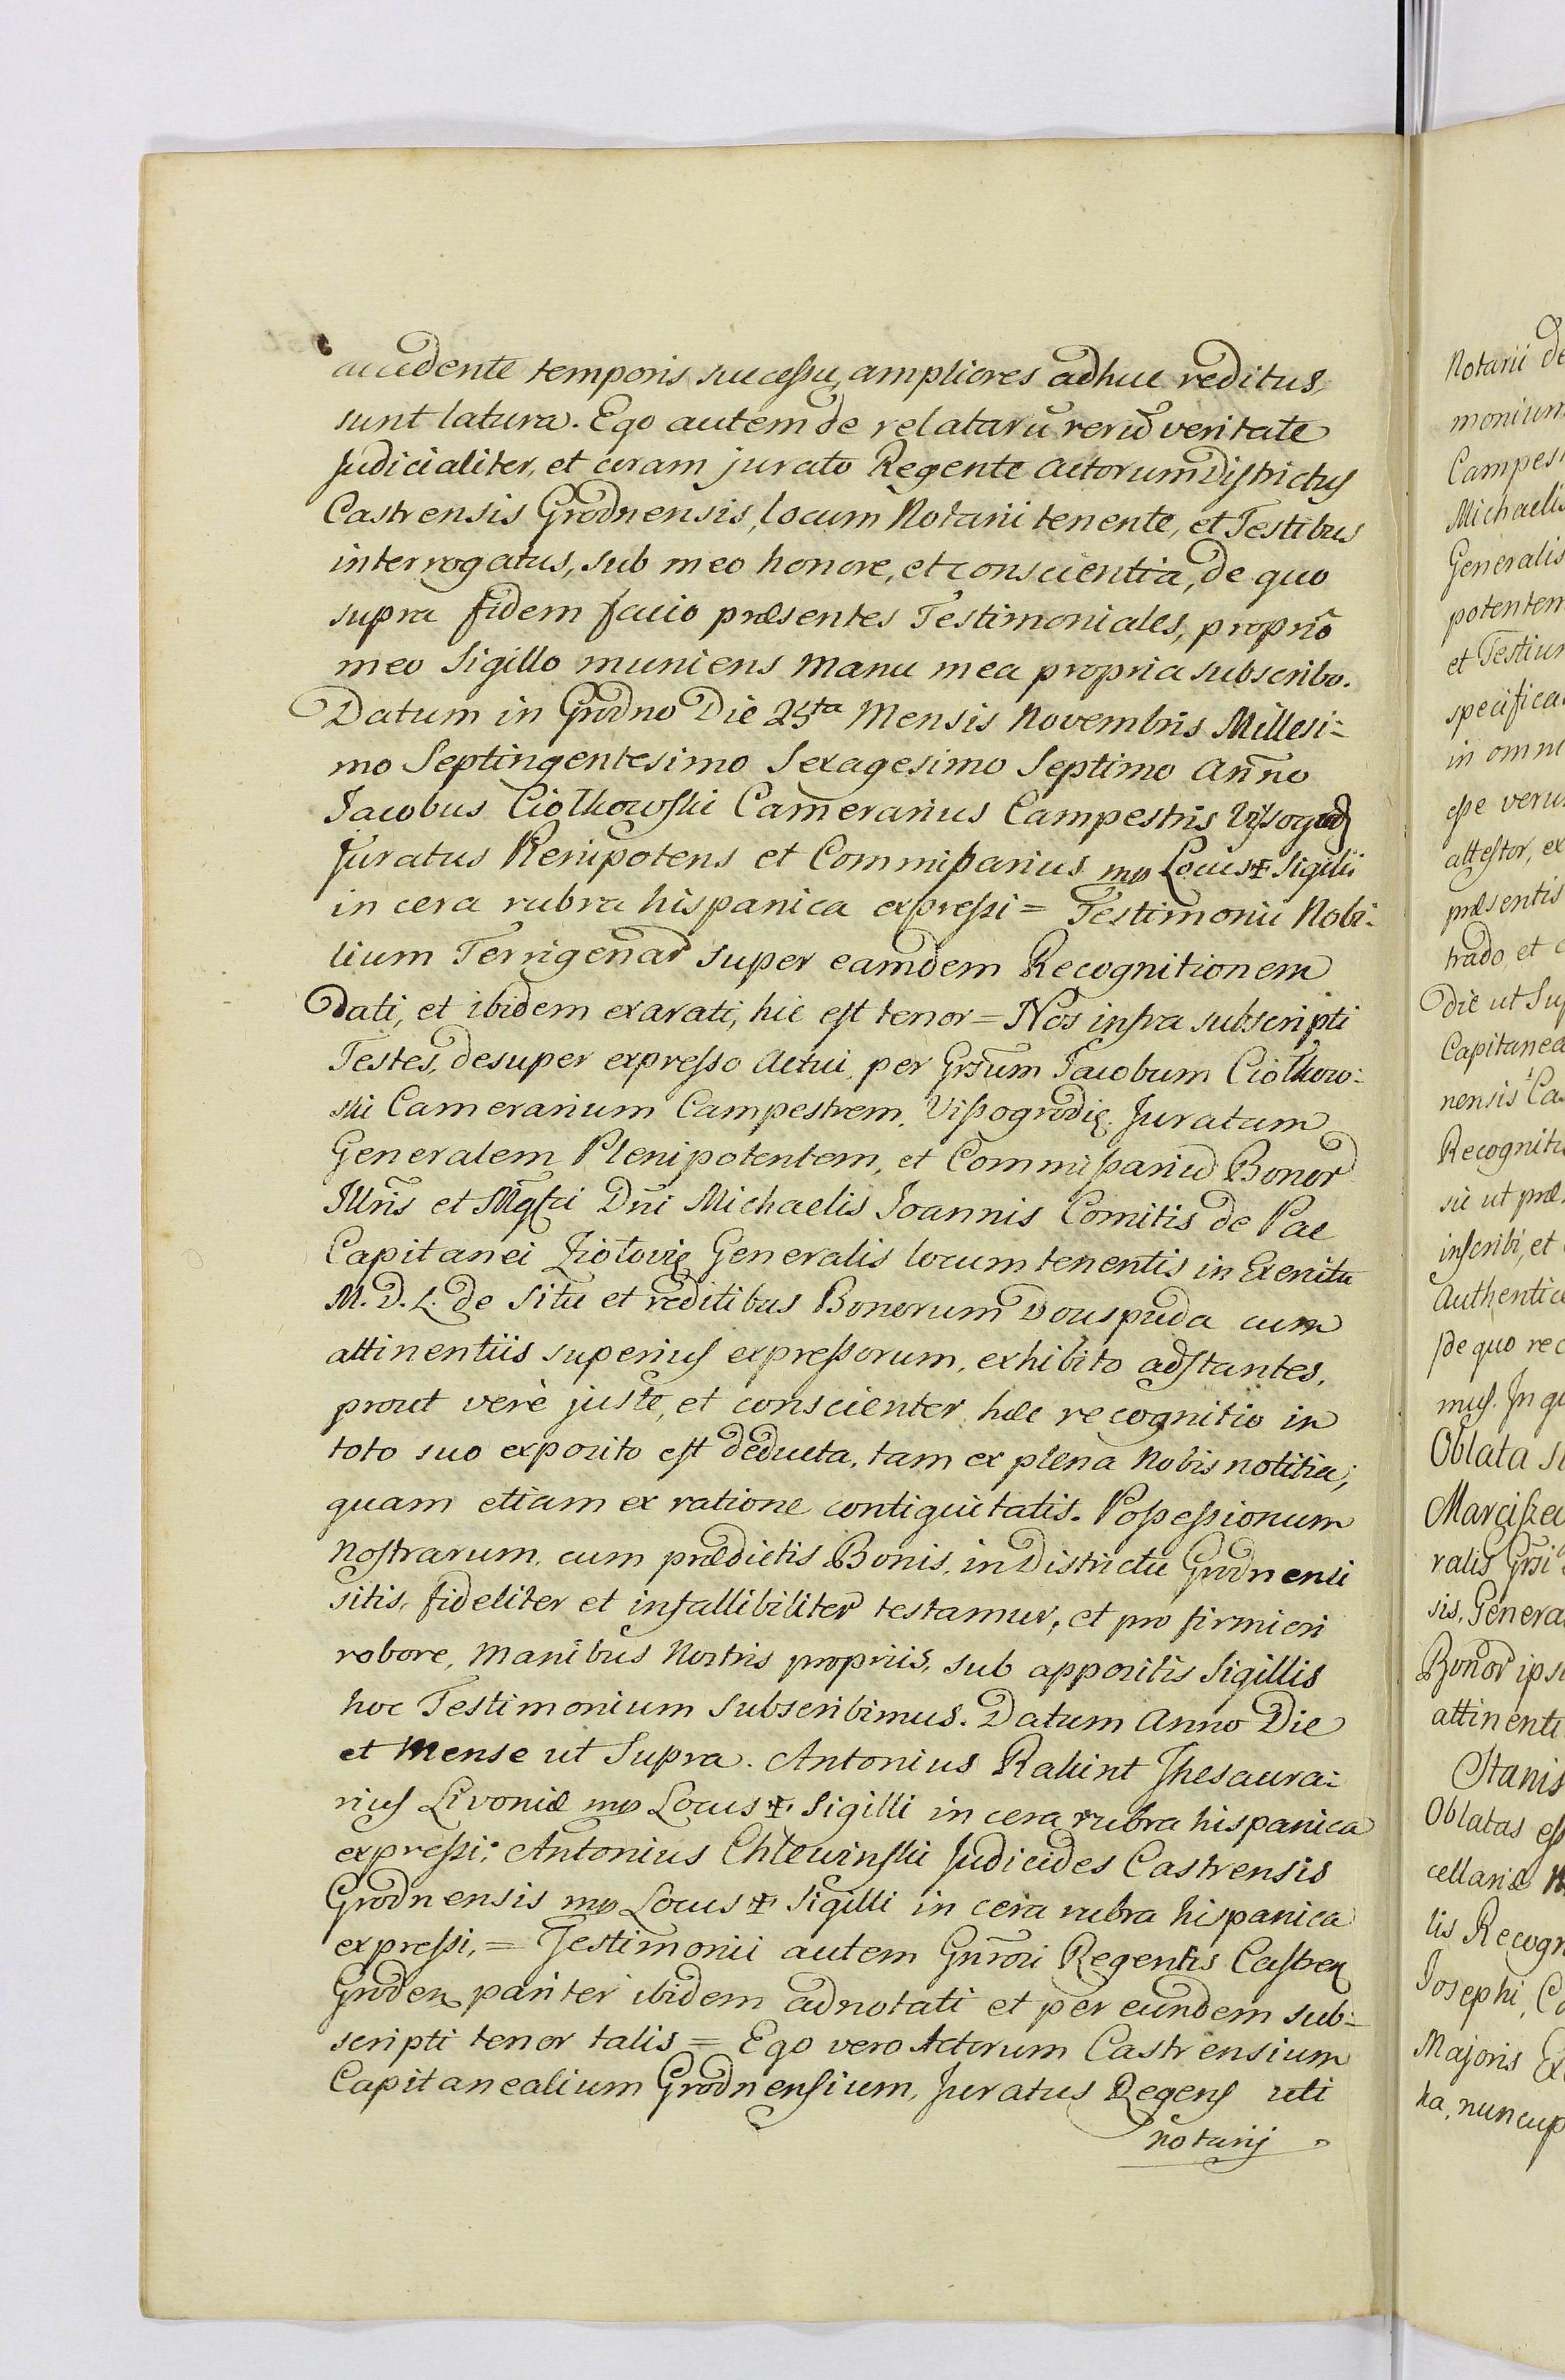 accedente temporis sucessu, ampliores adhuc reditus,
sunt latura. Ego autem de relatarū rerū veritate
Judicialiter, et coram jurato Regente Actorum Districtus
Castrensis Grodnensis, locum Notarii tenente, et Testibus
interrogatus, sub meo honore, et conscientia, de quo
supra fidem facio præsentes Testimoniales, proprio
meo Sigillo muniens manu mea propria subscribo.
Datum in Grodno Die 25ta Mensis Novembris Millesi-
mo Septingentesimo Sexagesimo Septimo Anno
Jacobus Ciołkowski Camerarius Campestris
Juratus Plenipotens et Commissarius mp Locus ✠ Sigilli
in cera rubra hispanica expressi = Testimonii Nobi-
lium Terrigenar super eamdem Recognitionem
Dati, et ibidem exarati, hic est tenor = Nos infra subscripti
Testes, desuper expresso Actui, per Grsum Jacobum Ciołkow-
ski Camerarium Campestrem, Vissogrodię. Juratum
Generalem Plenipotentem, et Commissariū Bonor
Illris et Mgfci Dni Michaelis Joannis Comitis de Pac
Capitanei Ziołovię Generalis locum tenentis in Exercitu
M. D. L. de Situ et reditibus Bonorum Douspuda cum
attinentiis superius expressorum, exhibito adstantes,
prout verè juste, et conscienter hæc recognitio in
toto suo exposito est deducta, tam ex plena Nobis notitia,
quam etiam ex ratione contiguitatis. Possessionum
Nostrarum, cum prædictis Bonis, in Districtu Grodnensi
sitis, fideliter et infallibiliter testamur, et pro firmiori
robore, Manibus Nostris propriis, sub appositis Sigillis
hoc Testimonium Subscribimus. Datum Anno Die
et Mense ut Supra. Antonius Rakint Thesaura-
rius Livoniæ mp Locus ✠ Sigilli in cera rubra hispanica
expressi; Antonius Chlewinski Judicides Castrensis
Grodnensis mp Locus ✠ Sigilli in cera rubra hispanica
expressi, = Testimonii autem Gnrosi Regentis Castren
Groden pariter ibidem adnotati et per eundem sub-
scripti tenor talis = Ego vero Actorum Castrensium
Capitanealium Grodnensium, Juratus Regens uti
notarij
Notarii de
monium
Campes
Michaelis
Generalis
potentem
et Testium
specifica
in omni
esse veru
attestor, ex
præsentis
trado, et
Die ut Su
Capitanea
nensis Ca
Recognit
sic ut præ
inscribi, et
Authentic
de quo rec
mus. In qu
Oblata
ralis Grsi
sis, Genera
Bonor ips
attinenti
Stanis
Oblatas ess
cellariæ
lis Recogn
Josephi, C
Majoris
ka, nuncup